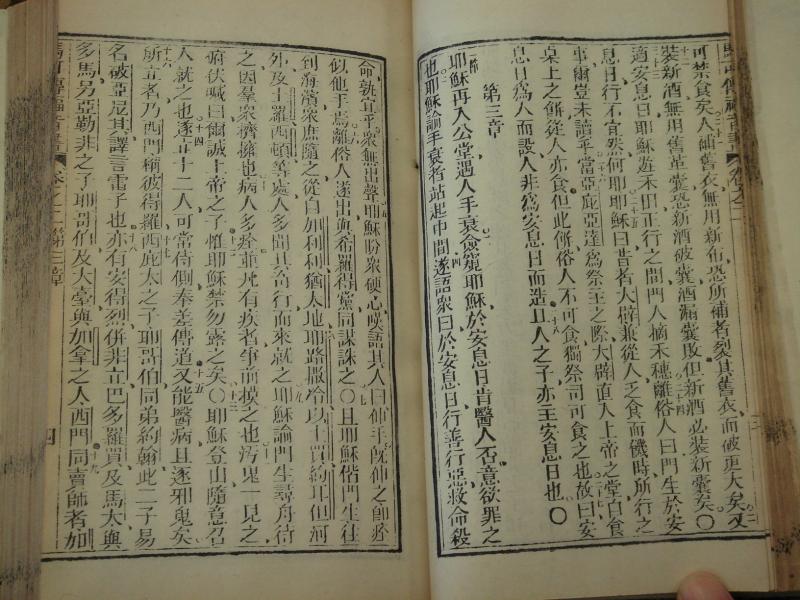 馬可傳福音書 卷之二
可禁食矣人補舊衣無用新布恐所補者裂其舊衣而破更大矣又
裝新酒無用舊革囊恐新酒破囊酒漏囊敗但新酒必裝新囊矣〇
適安息日耶穌遊禾田正行之間門人摘禾穗離俗人曰門生於安
息日行不宜然何耶耶穌曰昔者大辟兼從人乏食而饑時所行之
事爾豈未讀乎當亞庇亞達爲祭主之際大辟直入上帝之堂自食
桌上之餅從人亦食但此餅俗人不可食獨祭司可食之也故曰安
息日爲人而設人非爲安息日而造且人之子亦主安息日也〇
第三章
耶穌再入公堂遇人手衰僉窺耶穌於安息日肯醫人否意欲罪之
也耶穌諭手衰者站起中間遂語衆曰於安息日行善行惡救命殺
命孰宜乎衆無出聲耶穌盼衆硬心嘆語其人曰伸手旣伸之卽痊
似他手焉離俗人遂出與希羅得黨同謀誅之〇且耶穌偕門生往
到海濱衆庶隨之從自加利利猶太地耶路撒冷以土買約耳但河
外及土羅西頓等處人多聞其奇行而來就之耶穌諭門生尋舟待
之因羣衆擠擁也病人多痊並凡有疾者爭前摸之也污鬼一見之
俯伏喊曰爾誠上帝之子惟耶穌禁勿露之矣〇耶穌登山隨意召
人就之也遂立十二人可常侍側奉差傳道又能醫病且逐邪鬼矣
所立者乃西門稱彼得羅西庇太之子耶哥伯同弟約翰此二子易
名破亞尼其譯言雷子也亦有安得烈併非立巴多羅買及馬太與
多馬另亞勒非之子耶哥伯及大臺與加拿之人西門同賣師者加
馬可傳福音書 卷之二第三章 四